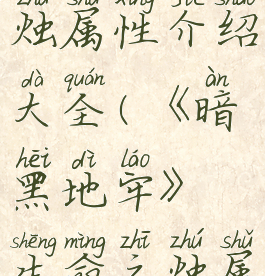 zhú shǔ xìng jiè shào
烛属性介绍
dà quán àn
大全(《暗
hēi dì láo
黑地牢》
shēng mìng zhī zhú shǔ
生命之烛属